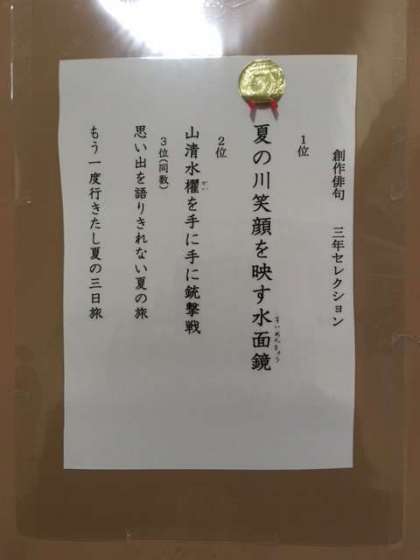 創作俳句　三年セレクション
1位
夏の川笑顔を映す水面鏡
すいめんきょう
2位
山清水櫂を手に手に銃撃戦
かい
3位(同数)
思い出を語りきれない夏の旅
もう一度行きたし夏の三日旅